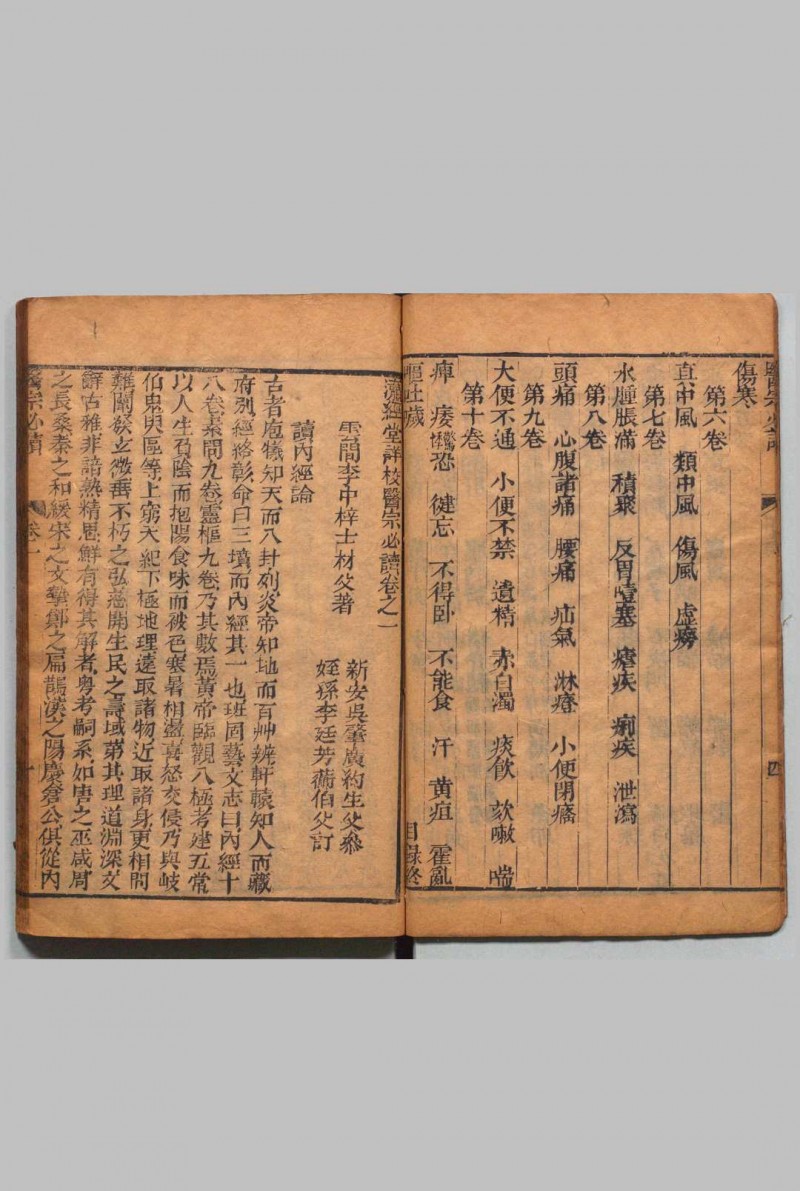 傷寒
第六卷
真中風 類中風 傷風 虛癆
第七卷
水腫脹滿 積聚 反胃噎塞 瘧疾 痢疾 泄瀉
第八卷
頭痛 心腹諸痛 腰痛 疝氣 淋癃 小便閉癃
第九卷
大便不通 小便不禁 遺精 赤白濁 痰飲 欬嗽 喘
第十卷
痺 痿 驚 恐 健忘 不得卧 不能食 汗 黄疸 霍亂
嘔吐噦 目録終
四
經堂詳校醫宗必讀卷之一
雲間李中梓士材父著
新安吳肇廣約生父叅
姪孫李廷芳蘅伯父訂
讀內經論
古者庖犧知天而八卦列炎帝知地而百艸辨軒轅知人而藏
府别經絡彰命曰三墳而內經其一也班固藝文志曰內經十
八卷素問九卷靈樞九卷乃其數焉黃帝臨觀八極考建五常
以人生負陰而抱陽食味而被色寒暑相盪喜怒交侵乃與岐
伯鬼臾區等上窮天紀下極地理遠取諸物近取諸身更相問
難闡發玄微垂不朽之弘慈開生民之壽域第其理道淵深文
辭古雅非諳熟精思鮮有得其解者粤考嗣系如唐之巫咸周
之長桑秦之和緩宋之文摯鄭之扁鵲漢之陽慶倉公俱從內
醫宗必讀 卷一 一